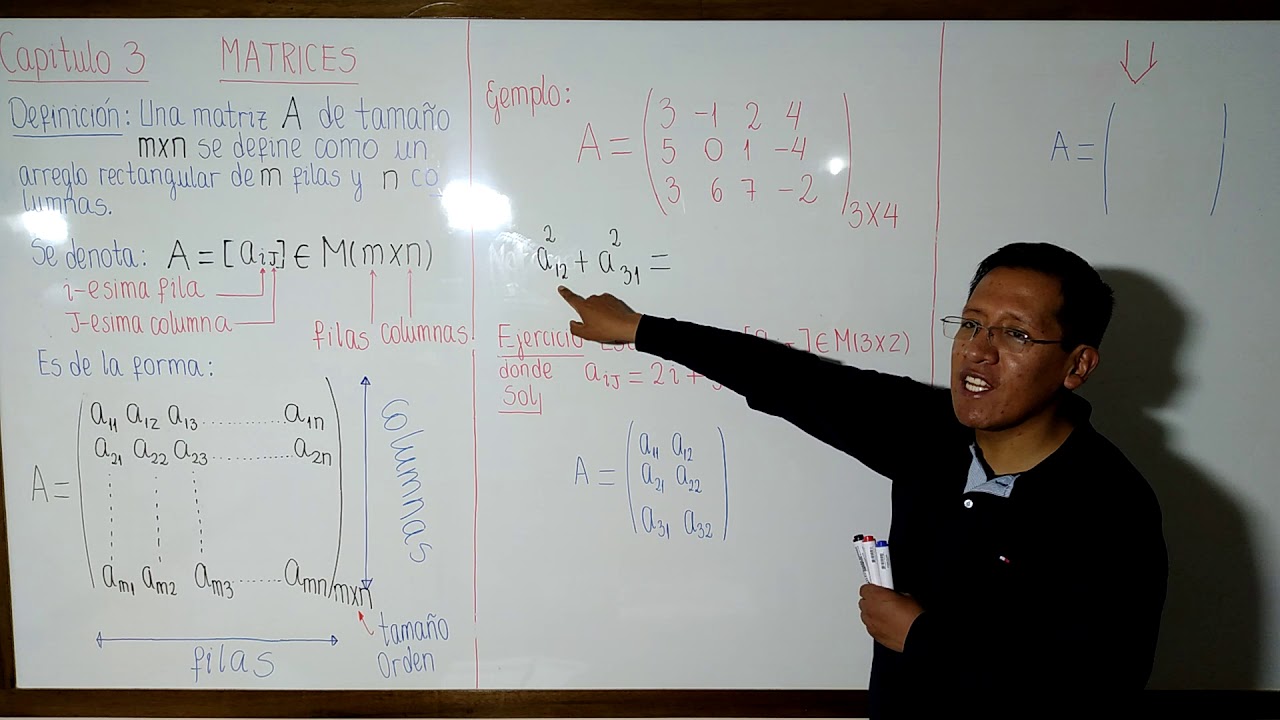 Capitulo 3 MATRICES
Definición: Una matriz A de tamaño
mxn se define como un
arreglo rectangular de m filas y n co
lumnas.
Se denota: A = [aij] ∈ M(mxn)
i-esima fila
J-esima columna
filas columnas
Es de la forma:
a11 a12 a13 ............ a1n
a21 a22 a23 ............ a2n
A =
am1 am2 am3 ........ amn mxn
columnas
filas
tamaño
orden
Ejemplo:
3 -1 2 4
A = 5 0 1 -4
3 6 7 -2
3X4
a²12 + a²31 =
Ejercicio ] ∈ M(3x2)
donde aij = 2i +
Sol
a11 a12
A = a21 a22
a31 a32
A =